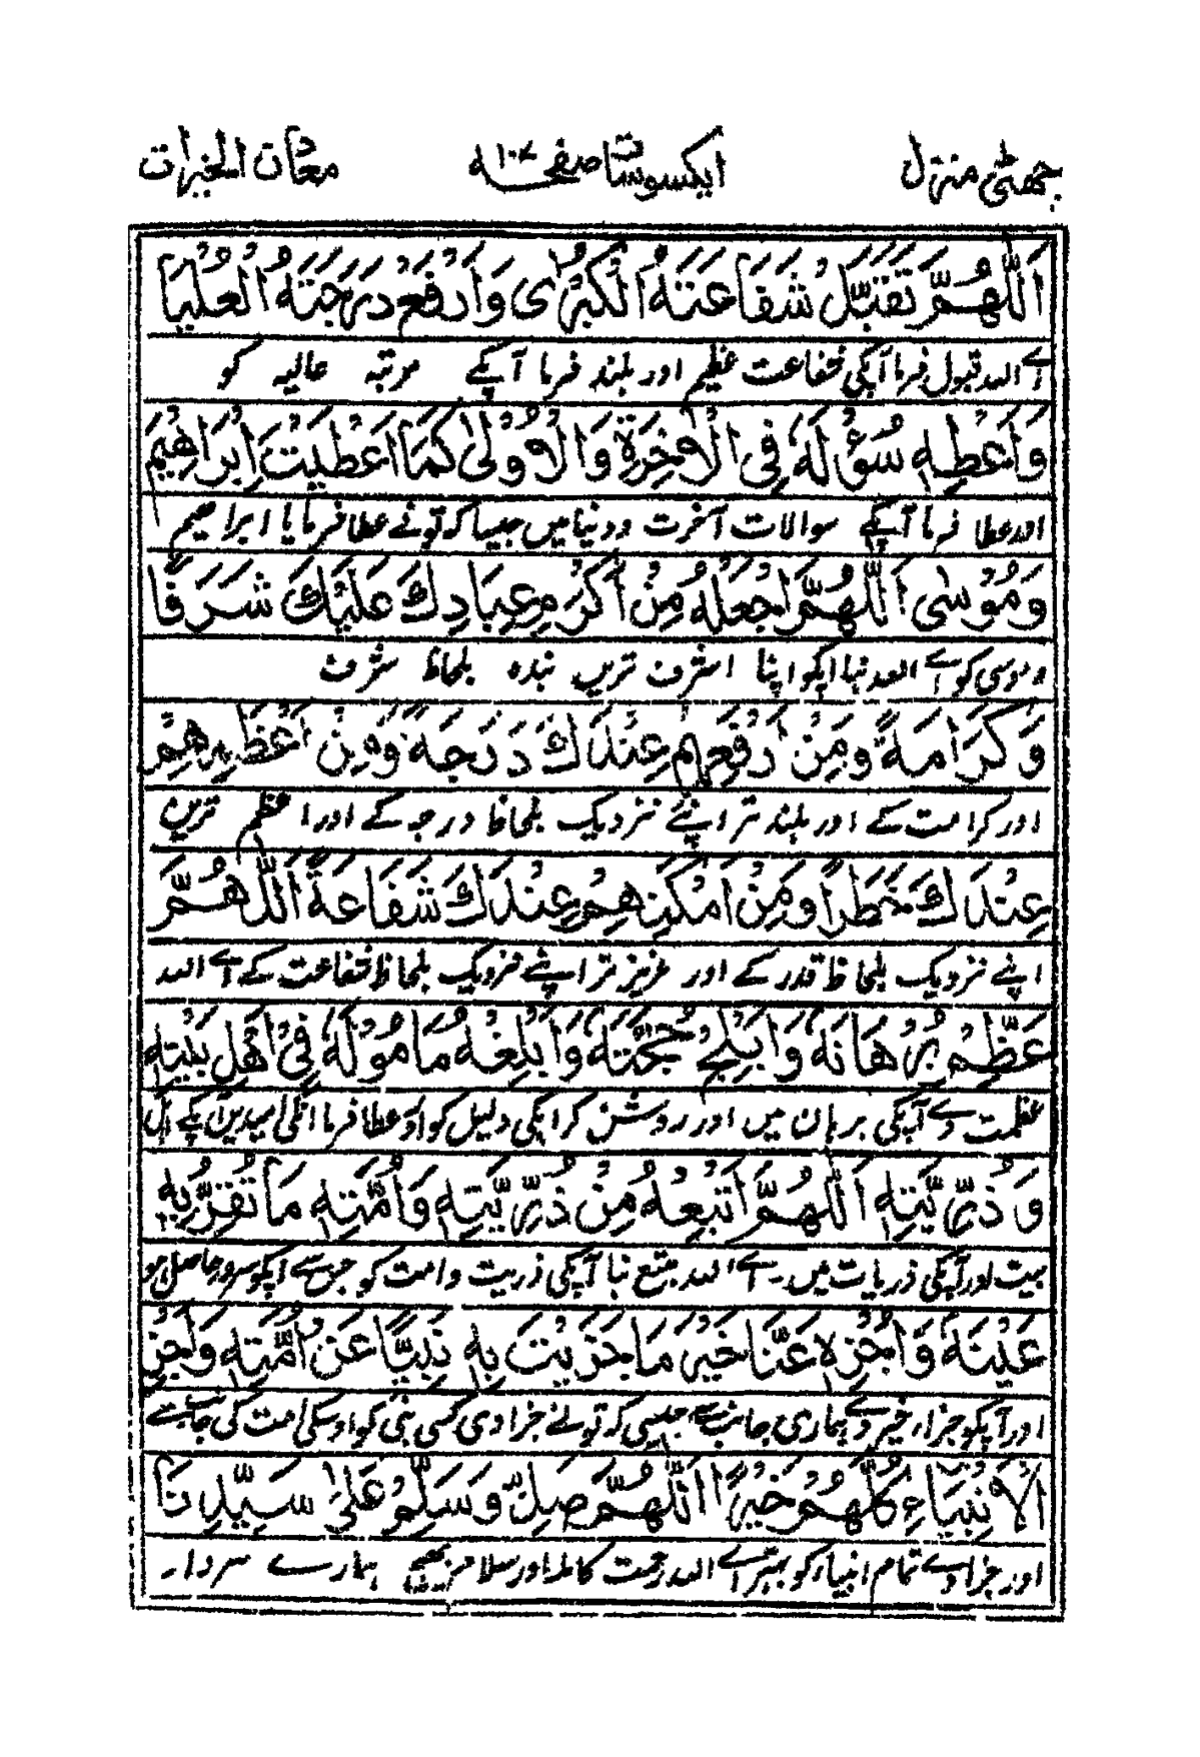 چھٹی منزل ایکسوسات صفحہ ۱۰۷ معدات الخیرات
اَللّٰهُمَّ تَقَبَّلْ شَفَاعَتَهُ الْكُبْرٰى وَارْفَعْ دَرَجَتَهُ الْعُلْيَا
اے اللہ قبول فرما آپکی شفاعت عظیم اور بلند فرما آپکے مرتبہ عالیہ کو
وَاَعْطِهٖ سُؤْلَهٗ فِى الْاٰخِرَةِ وَالْاُوْلٰى كَمَا اَعْطَيْتَ اِبْرَاهِيْمَ
اور عطا فرما آپکے سوالات آخرت و دنیا میں جیسا کہ تونے عطا فرمایا ابراھیم
وَمُوْسٰى اَللّٰهُمَّ اجْعَلْهُ مِنْ اَكْرَمِ عِبَادِكَ عَلَيْكَ شَرَفًا
و موسی کو اے اللہ بنا آپکو اپنا اشرف ترین بندہ بلحاظ شرف
وَّكَرَامَةً وَّمِنْ اَرْفَعِهِمْ عِنْدَكَ دَرَجَةً وَّمِنْ اَعْظَمِهِمْ
اور کرامت کے اور بلند تر اپنے نزدیک بلحاظ درجہ کے اور اعظم ترین
عِنْدَكَ خَطَرًا وَّمِنْ اَمْكَنِهِمْ عِنْدَكَ شَفَاعَةً اَللّٰهُمَّ
اپنے نزدیک بلحاظ قدر کے اور عزیز تر اپنے نزدیک بلحاظ شفاعت کے اے اللہ
عَظِّمْ بُرْهَانَهٗ وَاَبْلِجْ حُجَّتَهٗ وَاَبْلِغْهُ مَامُوْلَهٗ فِىْ اَهْلِ بَيْتِهٖ
عظمت دے آپکی برہان میں اور روشن کر آپکی دلیل کو اور عطا فرما انکی امیدیں آپکے اہل
وَذُرِّيَّتِهٖ اَللّٰهُمَّ اَتْبِعْهُ مِنْ ذُرِّيَّتِهٖ وَاُمَّتِهٖ مَا تُقِرُّ بِهٖ
بیت اور آپکی ذریات میں۔ اے اللہ متبع بنا آپکی ذریت و امت کو جس سے آپکو سرور حاصل ہو
عَيْنَهٗ وَاجْزِهٖ عَنَّا خَيْرَ مَا جَزَيْتَ بِهٖ نَبِيًّا عَنْ اُمَّتِهٖ وَاجْزِ
اور آپکو جزاء خیر دے ہماری جانب سے جیسی کہ تونے جزا دی کسی نبی کو اوسکی امت کی جانب سے
الْاَنْبِيَاءَ كُلَّهُمْ خَيْرًا اَللّٰهُمَّ صَلِّ وَسَلِّمْ عَلٰى سَيِّدِنَا
اور جزا دے تمام انبیاء کو بہتر اے اللہ رحمت کاملہ اور سلام بھیج ہمارے سردار